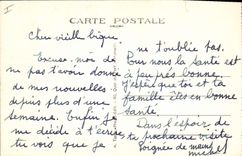 CARTE POSTALE
Cher vieille bique
Excuse moi de
ne pas t'avoir donné
de mes nouvelles
depuis plus d'une
semaine. Enfin je
me décide à t'écrire
tu vois que je
ne t'oublie pas.
Pour nous la santé est
à peu près bonne.
J'espère que toi et ta
famille êtes en bonne
santé.
Dans l'espoir de
ta prochaine visite
Poignée de mains
Michel